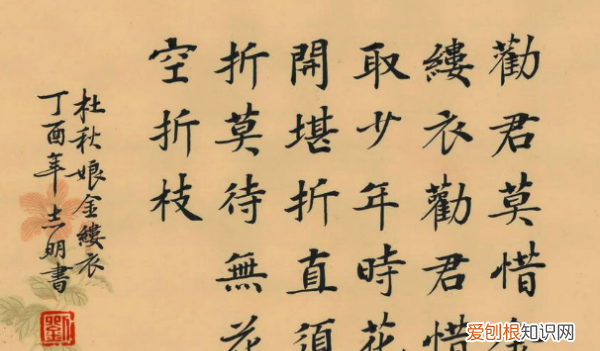 勸君莫惜金
縷衣勸君惜
取少年時花
開堪折直須
折莫待無花
空折枝
杜秋娘金縷衣
丁酉年志明書
劉
爱刨根知识网